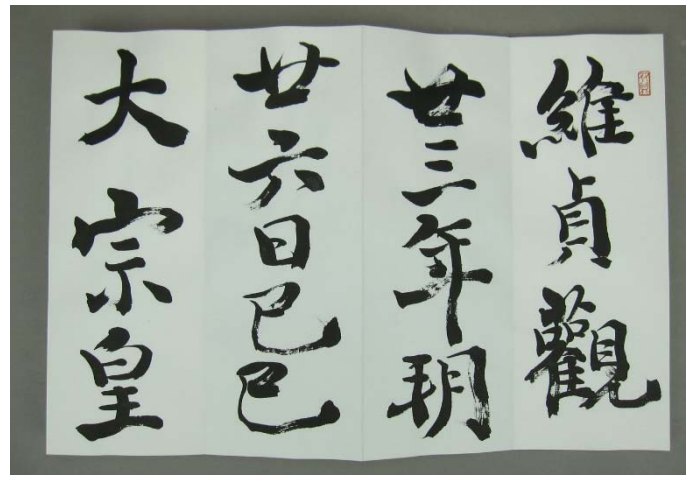 維貞觀
廿三年玥
廿六日巳巳
大宗皇